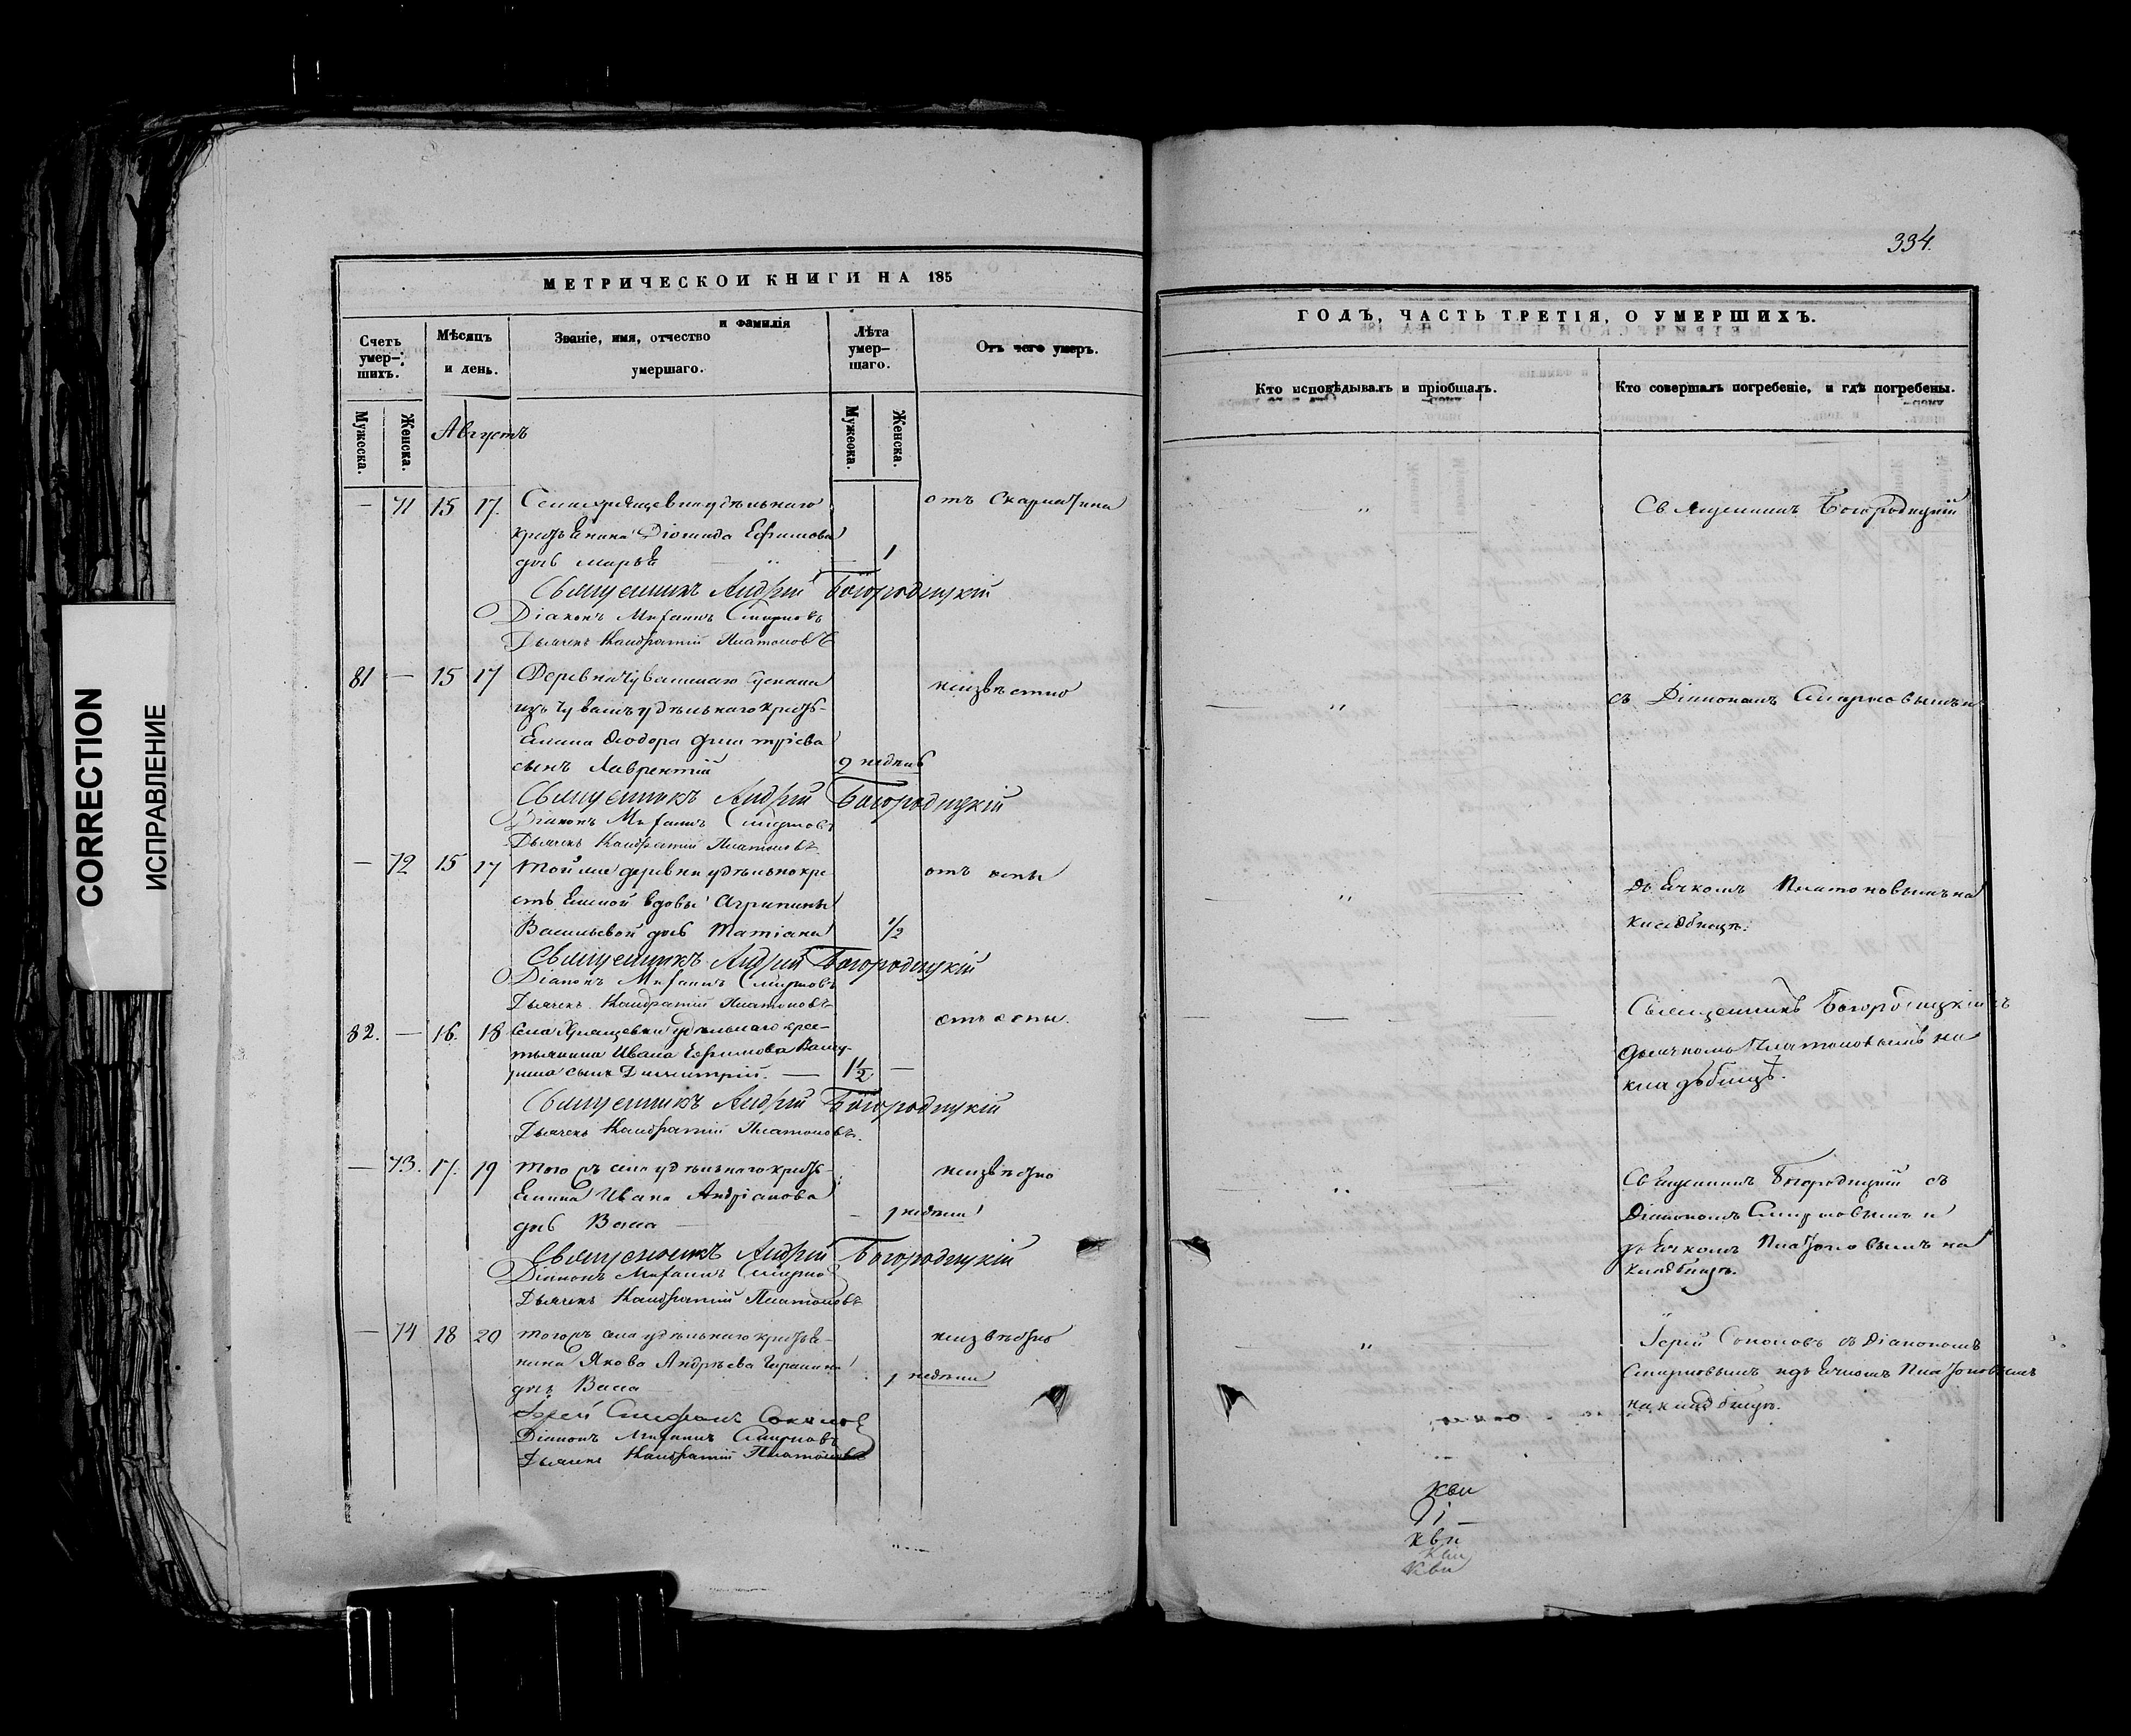 CORRECTION
ИСПРАВЛЕНИЕ
МЕТРИЧЕСКОЙ КНИГИ НА 185
Счетъ умер-шихъ.
Мѣсяцъ и день.
Званіе, имя, отчество и фамилія умершаго.
Лѣта умер-шаго.
Отъ чего умеръ.
Мужеска.
Женска.
Августъ
Мужеска.
Женска.
— 71 15 17. Села удѣльнаго отъ скарлатина
Діомида Ефимова
дочь Марья 1
Священникъ Андрей Богородицкій
Діаконъ Смирновъ
Дьячекъ Кондратій Платоновъ
81 — 15 17 Деревни неизвѣстно
изъ чувашъ удѣльнаго кресть-
янина Ѳеодора Дмитріева
сынъ Лаврентій 2 недѣль
Священникъ Андрей Богородицкій
Діаконъ Смирновъ
Дьячекъ Кондратій Платоновъ
— 72 15 17 Той же деревни удѣльной кре отъ оспы
стьянской вдовы Агрипины
Васильевой дочь Татіана 1/2
Священникъ Андрей Богородицкій
Діаконъ Смирновъ
Дьячекъ Кондратій Платоновъ
82. — 16. 18 Села Хрящевки удѣльнаго крес- отъ оспы.
тьянина Ивана Ефимова
сынъ Димитрій. — 1 1/2 —
Священникъ Андрей Богородицкій
Дьячекъ Кондратій Платоновъ.
— 73. 17. 19 Тогожъ села удѣльнаго кресть- неизвѣстно
янина Ивана Андріанова
дочь Васса — 1 недѣли
Священникъ Андрей Богородицкій
Діаконъ Смирновъ
Дьячекъ Кондратій Платоновъ
— 74 18 20 Тогожъ села удѣльнаго крестья- неизвѣстно
нина Якова Андрѣева
дочь Васса 1 недѣли
Іерей Соколовъ
Діаконъ Смирновъ
Дьячекъ Кондратій Платоновъ
334.
ГОДЪ, ЧАСТЬ ТРЕТІЯ, О УМЕРШИХЪ.
Кто исповѣдывалъ и пріобщалъ.
Кто совершалъ погребеніе, и гдѣ погребены.
Священникъ Богородицкій
съ Діакономъ Смирновымъ и
дьячкомъ Платоновымъ на
кладбищѣ.
Священникъ Богородицкій съ
дьячкомъ Платоновымъ на
кладбищѣ.
Священникъ Богородицкій съ
Діакономъ Смирновымъ и
дьячкомъ Платоновымъ на
кладбищѣ.
Іерей Соколовъ съ Діакономъ
Смирновымъ и дьячкомъ Платоновымъ
на кладбищѣ.